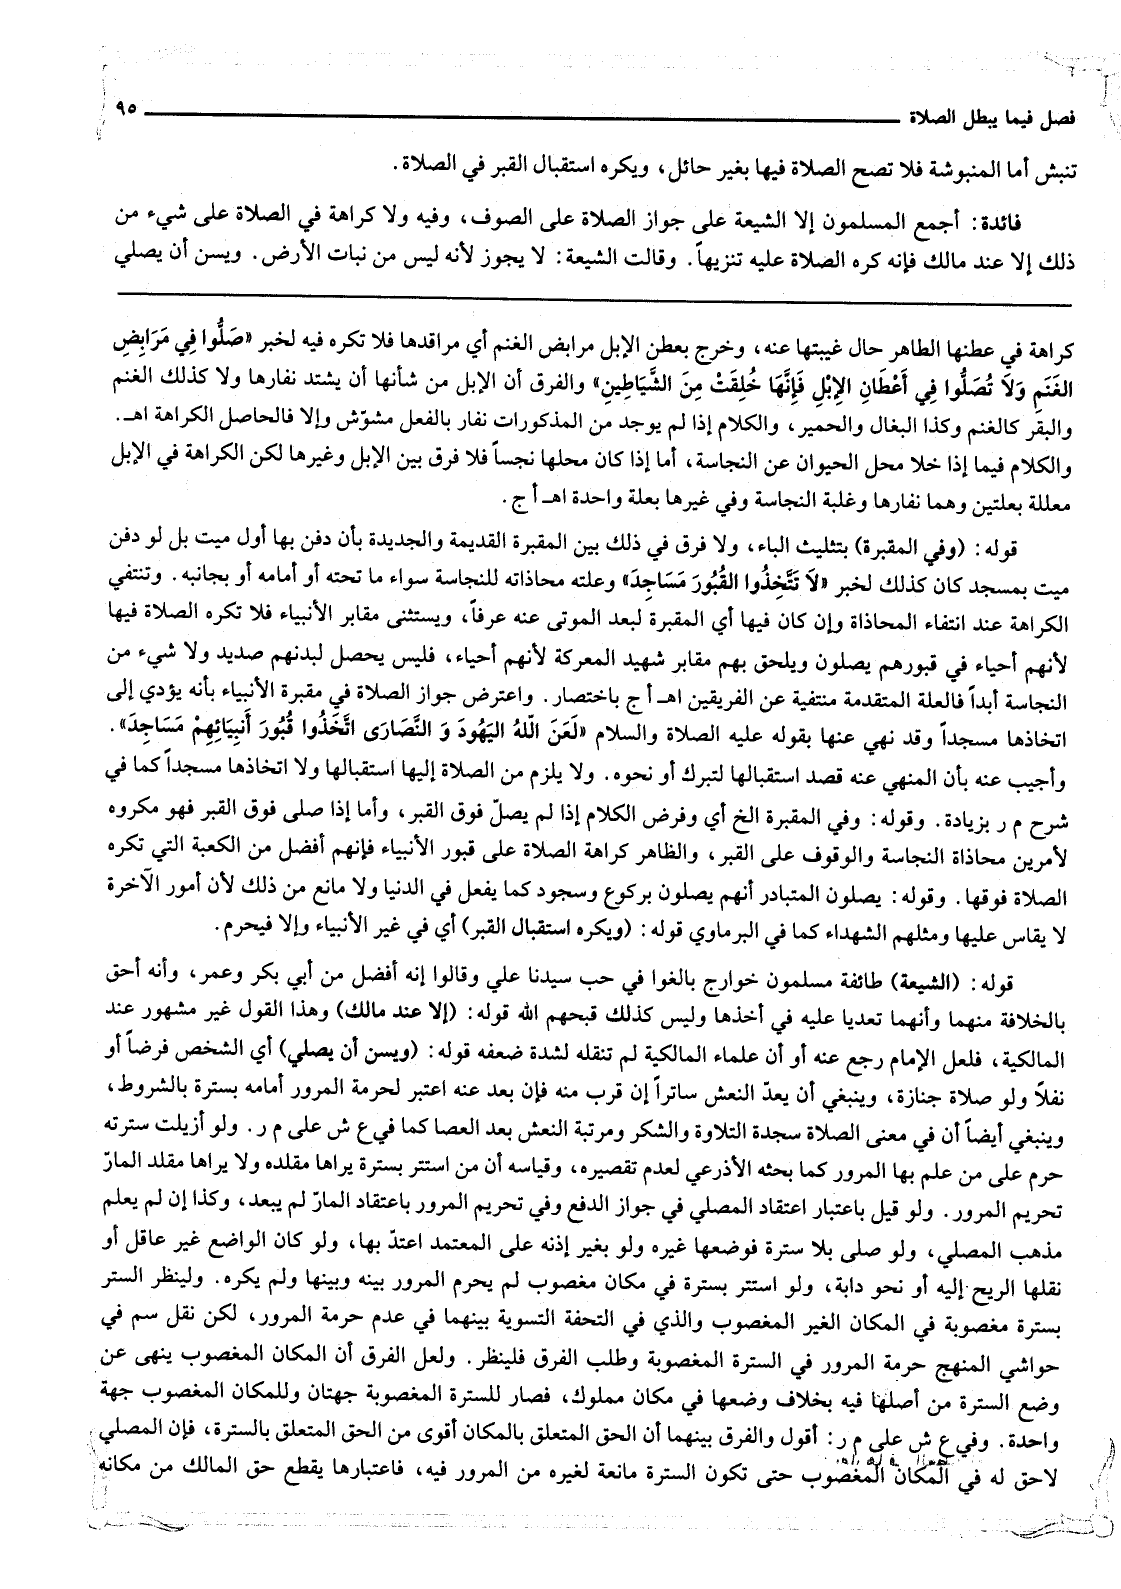 فصل فيما يبطل الصلاة ٩٥
تنبش أما المنبوشة فلا تصح الصلاة فيها بغير حائل، ويكره استقبال القبر في الصلاة.
فائدة: أجمع المسلمون إلا الشيعة على جواز الصلاة على الصوف، وفيه ولا كراهة في الصلاة على شيء من
ذلك إلا عند مالك فإنه كره الصلاة عليه تنزيهاً. وقالت الشيعة: لا يجوز لأنه ليس من نبات الأرض. ويسن أن يصلي
كراهة في عطنها الطاهر حال غيبتها عنه، وخرج بعطن الإبل مرابض الغنم أي مراقدها فلا تكره فيه لخبر «صَلُّوا فِي مَرَابِضِ
الغَنَمِ وَلاَ تُصَلُّوا فِي أَعْطَانِ الإِبْلِ فَإِنَّهَا خُلِقَتْ مِنَ الشَّيَاطِينِ» والفرق أن الإبل من شأنها أن يشتد نفارها ولا كذلك الغنم
والبقر كالغنم وكذا البغال والحمير، والكلام إذا لم يوجد من المذكورات نفار بالفعل مشوّش وإلا فالحاصل الكراهة اهـ.
والكلام فيما إذا خلا محل الحيوان عن النجاسة، أما إذا كان محلها نجساً فلا فرق بين الإبل وغيرها لكن الكراهة في الإبل
معللة بعلتين وهما نفارها وغلبة النجاسة وفي غيرها بعلة واحدة اهـ أ ج.
قوله: (وفي المقبرة) بتثليث الباء، ولا فرق في ذلك بين المقبرة القديمة والجديدة بأن دفن بها أول ميت بل لو دفن
ميت بمسجد كان كذلك لخبر «لاَ تَتَّخِذُوا القُبُورَ مَسَاجِدَ» وعلته محاذاته للنجاسة سواء ما تحته أو أمامه أو بجانبه. وتنتفي
الكراهة عند انتفاء المحاذاة وإن كان فيها أي المقبرة لبعد الموتى عنه عرفاً، ويستثنى مقابر الأنبياء فلا تكره الصلاة فيها
لأنهم أحياء في قبورهم يصلون ويلحق بهم مقابر شهيد المعركة لأنهم أحياء، فليس يحصل لبدنهم صديد ولا شيء من
النجاسة أبداً فالعلة المتقدمة منتفية عن الفريقين اهـ أ ج باختصار. واعترض جواز الصلاة في مقبرة الأنبياء بأنه يؤدي إلى
اتخاذها مسجداً وقد نهي عنها بقوله عليه الصلاة والسلام «لَعَنَ اللّهُ اليَهُودَ وَ النَّصَارَى اتَّخَذُوا قُبُورَ أَنبِيَائِهِمْ مَسَاجِدَ».
وأجيب عنه بأن المنهي عنه قصد استقبالها لتبرك أو نحوه. ولا يلزم من الصلاة إليها استقبالها ولا اتخاذها مسجداً كما في
شرح م ر بزيادة. وقوله: وفي المقبرة الخ أي وفرض الكلام إذا لم يصلّ فوق القبر، وأما إذا صلى فوق القبر فهو مكروه
لأمرين محاذاة النجاسة والوقوف على القبر، والظاهر كراهة الصلاة على قبور الأنبياء فإنهم أفضل من الكعبة التي تكره
الصلاة فوقها. وقوله: يصلون المتبادر أنهم يصلون بركوع وسجود كما يفعل في الدنيا ولا مانع من ذلك لأن أمور الآخرة
لا يقاس عليها ومثلهم الشهداء كما في البرماوي قوله: (ويكره استقبال القبر) أي في غير الأنبياء وإلا فيحرم.
قوله: (الشيعة) طائفة مسلمون خوارج بالغوا في حب سيدنا علي وقالوا إنه أفضل من أبي بكر وعمر، وأنه أحق
بالخلافة منهما وأنهما تعديا عليه في أخذها وليس كذلك قبحهم الله قوله: (إلا عند مالك) وهذا القول غير مشهور عند
المالكية، فلعل الإمام رجع عنه أو أن علماء المالكية لم تنقله لشدة ضعفه قوله: (ويسن أن يصلي) أي الشخص فرضاً أو
نفلاً ولو صلاة جنازة، وينبغي أن يعدّ النعش ساتراً إن قرب منه فإن بعد عنه اعتبر لحرمة المرور أمامه بسترة بالشروط،
وينبغي أيضاً أن في معنى الصلاة سجدة التلاوة والشكر ومرتبة النعش بعد العصا كما في ع ش على م ر. ولو أزيلت سترته
حرم على من علم بها المرور كما بحثه الأذرعي لعدم تقصيره، وقياسه أن من استتر بسترة يراها مقلده ولا يراها مقلد المارّ
تحريم المرور. ولو قيل باعتبار اعتقاد المصلي في جواز الدفع وفي تحريم المرور باعتقاد المارّ لم يبعد، وكذا إن لم يعلم
مذهب المصلي، ولو صلى بلا سترة فوضعها غيره ولو بغير إذنه على المعتمد اعتدّ بها، ولو كان الواضع غير عاقل أو
نقلها الريح إليه أو نحو دابة، ولو استتر بسترة في مكان مغصوب لم يحرم المرور بينه وبينها ولم يكره. ولينظر الستر
بسترة مغصوبة في المكان الغير المغصوب والذي في التحفة التسوية بينهما في عدم حرمة المرور، لكن نقل سم في
حواشي المنهج حرمة المرور في السترة المغصوبة وطلب الفرق فلينظر. ولعل الفرق أن المكان المغصوب ينهى عن
وضع السترة من أصلها فيه بخلاف وضعها في مكان مملوك، فصار للسترة المغصوبة جهتان وللمكان المغصوب جهة
واحدة. وفي ع ش على م ر: أقول والفرق بينهما أن الحق المتعلق بالمكان أقوى من الحق المتعلق بالسترة، فإن المصلي
لاحق له في المكان المغصوب حتى تكون السترة مانعة لغيره من المرور فيه، فاعتبارها يقطع حق المالك من مكانه